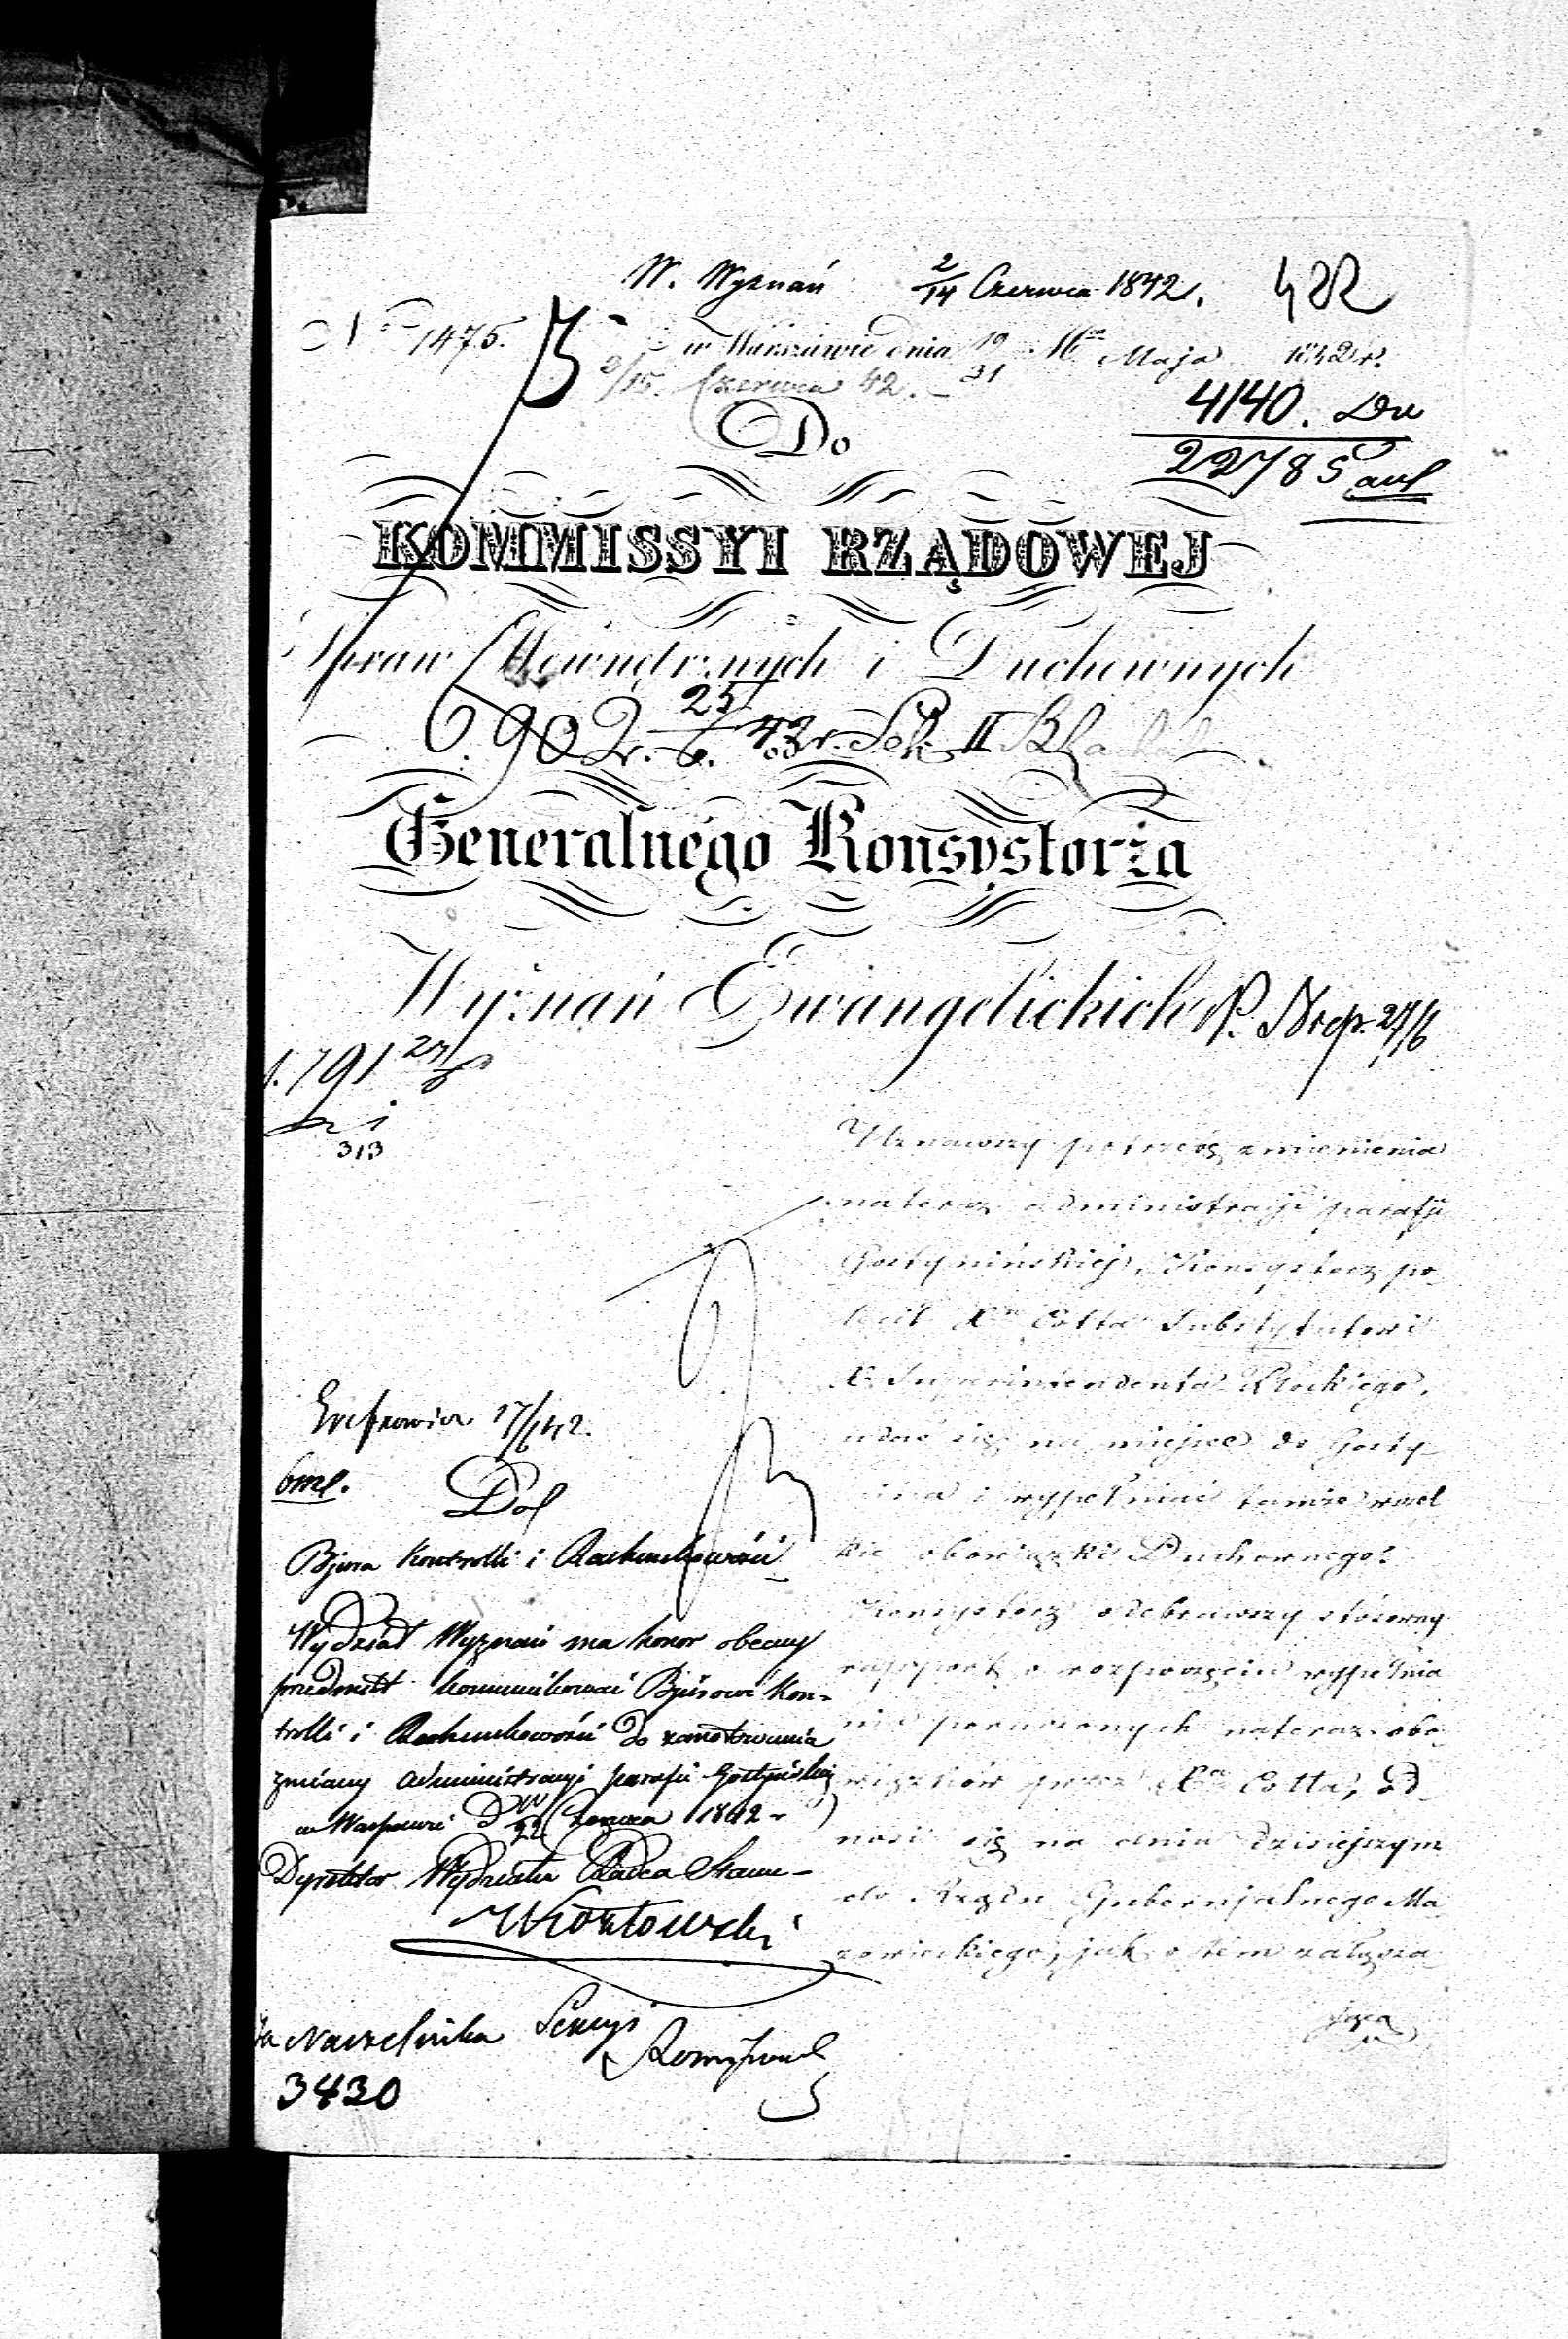 W. Wyznań 2/14 Czerwca 1842. 482
No 1475. w Warszawie dnia 19/31 Mca Maja 1842 r.
2/15. Czerwca 42.
4140.
22785
Do
KOMMISSYI RZĄDOWEJ
Spraw Wewnętrznych i Duchownych
902 25/6 42 r. Sek. II
Generalnego Konsystorza
Wyznań Ewangelickich
791
313
Uznawszy potrzebę zmienienia
nateraz administracji parafji
Gostynińskiej, Konsystorz po-
lecił Xu Cotta Substytutowi
X. Superintendenta Płockiego,
udać się na miejsce do Gosty-
nina i wypełniać tamże wszel
kie obowiązki Duchownego.
Konsystorz odebrawszy stósowny
rapport o rozpoczęciu wypełnia
nia poruczonych nateraz obo-
wiązków przez Xa Cotta, od-
nosi się na dniu dzisiejszym
do Rządu Gubernjalnego Ma
zowieckiego, jak o tém załącza
jąca
17/6 42.
Do
Bjura Kontrolli i Rachunkowości
Wydział Wyznań ma honor obecny
przedmiot kommunikować Bjurowi Kon-
trolli i Rachunkowości do zanotowania
zmiany Administracyi parafii Gostyńskiej
w Warszawie D 10/22 Czerwca 1842 r
Dyrektor Wydziału Radca Stanu
Kozłowski
Za Naczelnika Sekcyi
3430